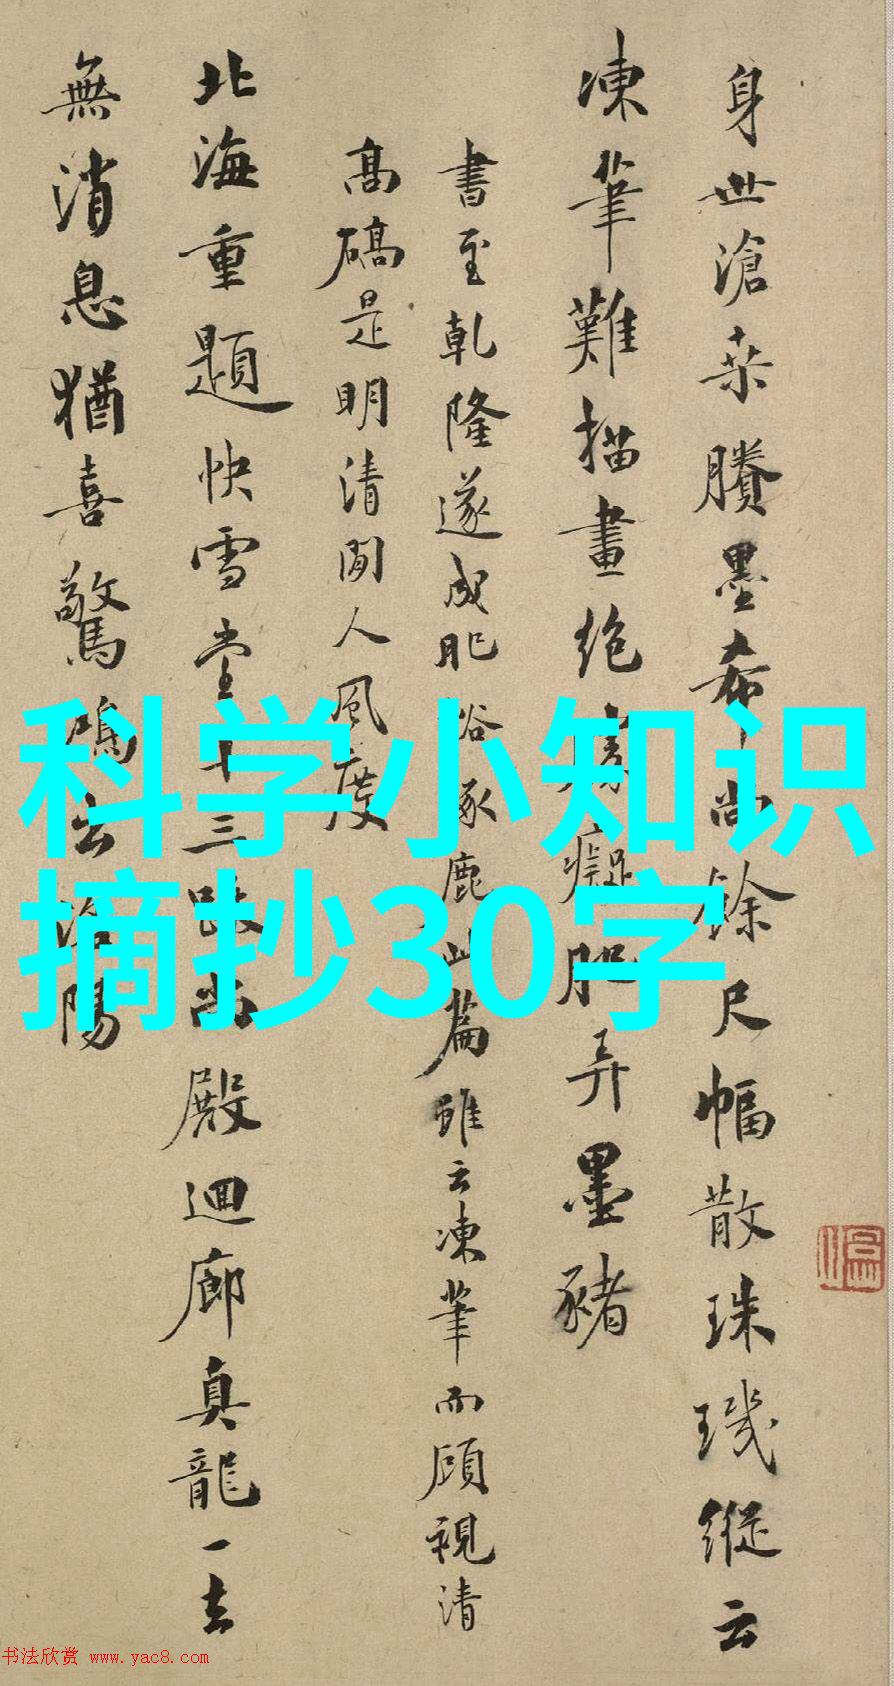 身世滄桑賸墨希尚餘尺幅散珠璣縱云
凍筆難描畫絶癡肥弄墨豬
書至乾隆遂成肥俗豕鹿此篇雖云凍筆而顧視清
高礄是明清間人風度
北海重題快雪堂十三殿迴廊真龍一去
無消息猶喜驚鴻去陽
科学小知识
摘抄30字
书法欣赏 www.yac8.com